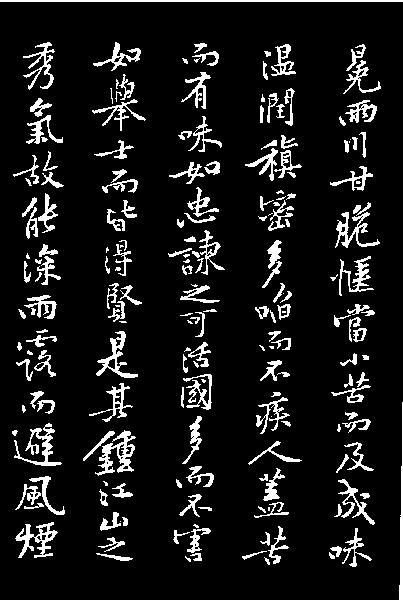 冕兩川甘脆愜當小苦而及成味
温潤稹密多啗而不疾人蓋苦
而有味如忠諫之可活國多而不害
如舉士而皆得賢是其鍾江山之
秀氣故能深雨露而避風煙